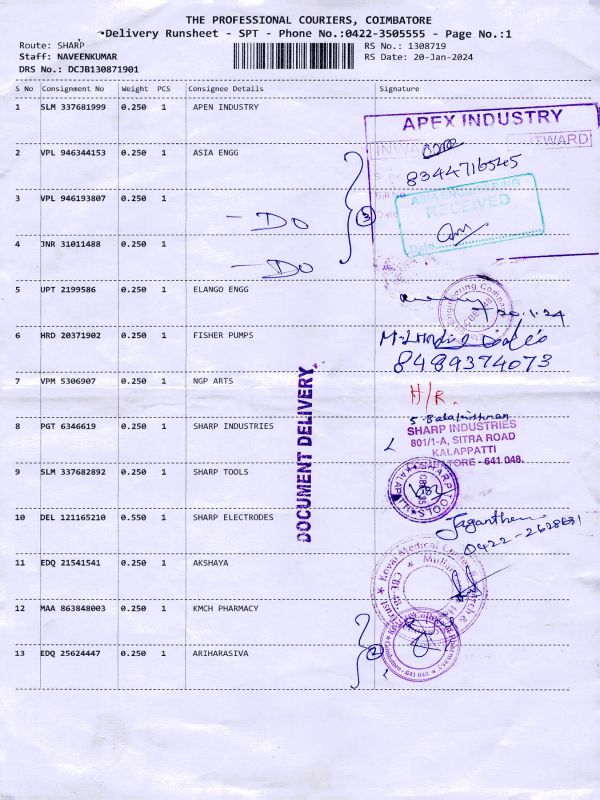 THE PROFESSIONAL COURIERS, COIMBATORE
Delivery Runsheet - SPT - Phone No.:0422-3505555 - Page No.:1
Route: SHARP
Staff: NAVEENKUMAR
DRS No.: DCJB130871901
RS No.: 1308719
RS Date: 20-Jan-2024
S No Consignment No Weight PCS Consignee Details Signature
1 SLM 337681999 0.250 1 APEN INDUSTRY
APEX INDUSTRY
2 VPL 946344153 0.250 1 ASIA ENGG
8344716545
3 VPL 946193807 0.250 1 - DO
ASIA ENGINEERING
RECEIVED
3
4 JNR 31011488 0.250 1 - DO
Date
5 UPT 2199586 0.250 1 ELANGO ENGG
20.1.24
6 HRD 20371902 0.250 1 FISHER PUMPS
8489374073
7 VPM 5306907 0.250 1 NGP ARTS
H/R.
DOCUMENT DELIVERY
8 PGT 6346619 0.250 1 SHARP INDUSTRIES
S. Balakrishnan
SHARP INDUSTRIES
801/1-A, SITRA ROAD
KALAPPATTI
641 048.
9 SLM 337682892 0.250 1 SHARP TOOLS
SHARP TOOLS
10 DEL 121165210 0.550 1 SHARP ELECTRODES
11 EDQ 21541541 0.250 1 AKSHAYA
12 MAA 863848003 0.250 1 KMCH PHARMACY
13 EDQ 25624447 0.250 1 ARIHARASIVA
2